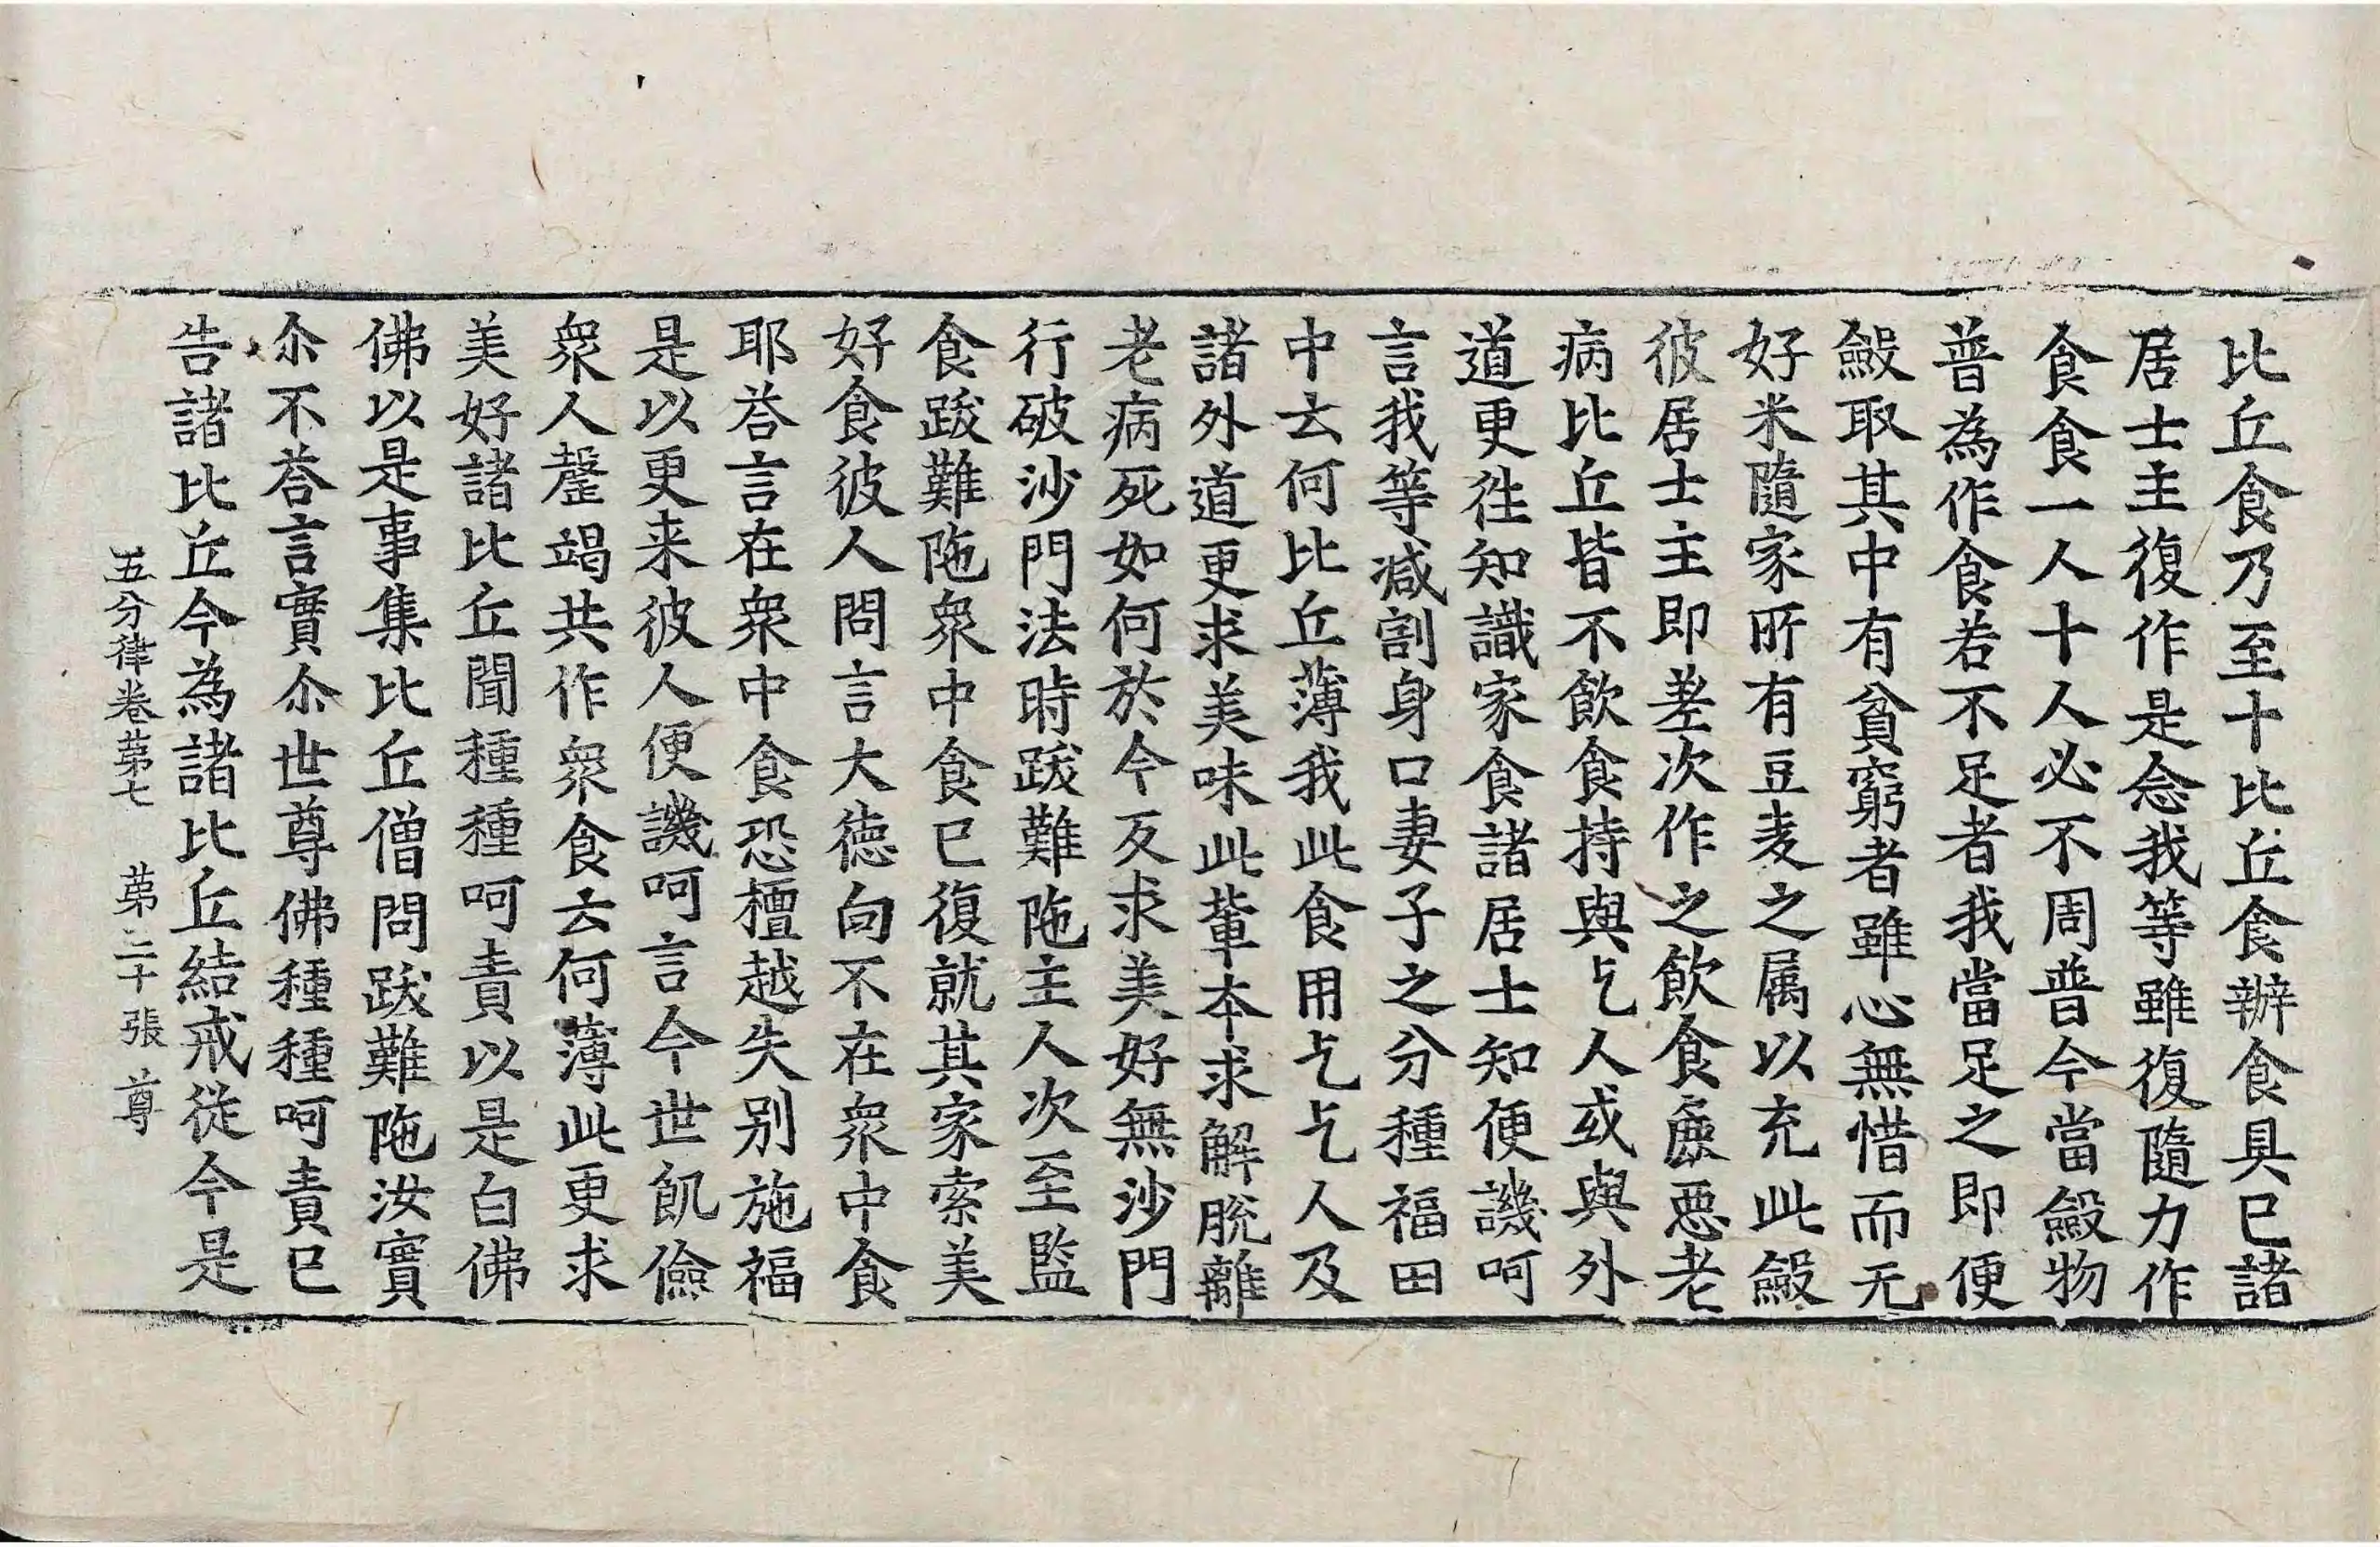 比丘食乃至十比丘食辦食具已諸
居士主復作是念我等雖復隨力作
食食一人十人必不周普今當斂物
普為作食若不足者我當足之即便
斂取其中有貧窮者雖心無惜而无
好米隨家所有豆麦之属以充此斂
彼居士主即差次作之飲食麁惡老
病比丘皆不飲食持與乞人或與外
道更往知識家食諸居士知便譏呵
言我等減割身口妻子之分種福田
中云何比丘薄我此食用乞乞人及
諸外道更求美味此輩本求解脫離
老病死如何於今反求美好無沙門
行破沙門法時跋難陁主人次至監
食跋難陁眾中食已復就其家索美
好食彼人問言大德向不在眾中食
耶荅言在眾中食恐檀越失别施福
是以更来彼人便譏呵言今世飢儉
眾人罄竭共作眾食云何薄此更求
美好諸比丘聞種種呵責以是白佛
佛以是事集比丘僧問跋難陁汝實
尒不荅言實尒世尊佛種種呵責已
告諸比丘今為諸比丘結戒從今是
五分律卷苐七 苐二十張 尊